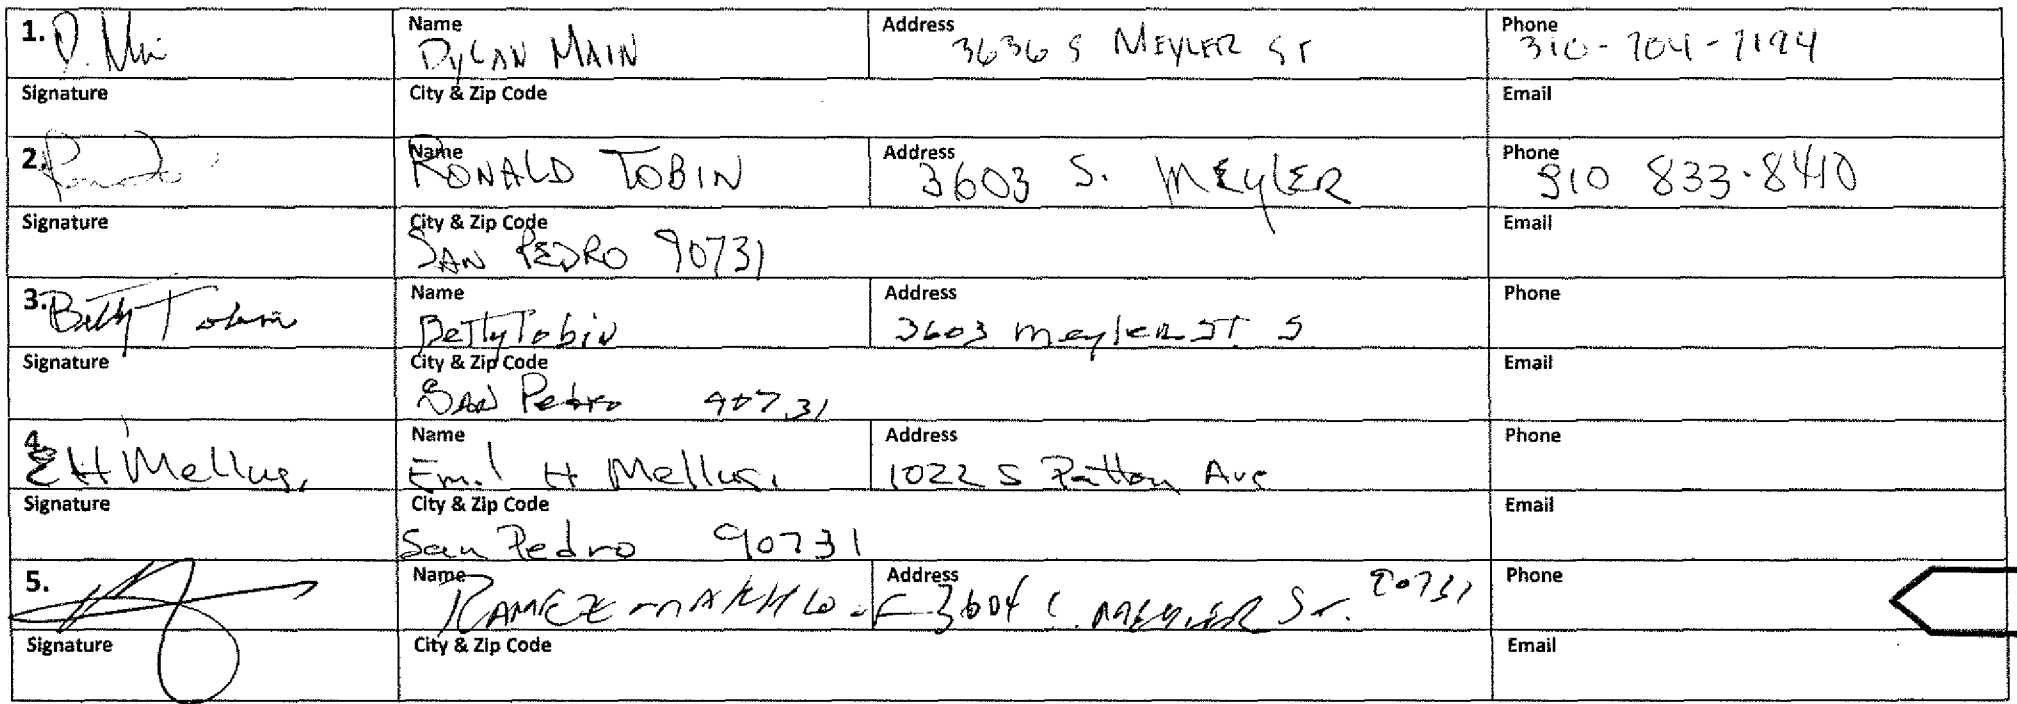 1. D. Mai Name DYLAN MAIN Address 3636 S MEYLER ST Phone 310-704-7194
Signature City & Zip Code Email
2. Name RONALD TOBIN Address 3603 S. MEYLER Phone 310 833-8410
Signature City & Zip Code SAN PEDRO 90731 Email
3. Betty Tobin Name Betty Tobin Address 3603 meyler ST. S Phone
Signature City & Zip Code SAN Pedro 90731 Email
4. EH Mellusi Name Emil H Mellusi Address 1022 S Patton Ave Phone
Signature City & Zip Code San Pedro 90731 Email
5. Name RAMEZ Address 3604 S. MEYLER St. 90731 Phone
Signature City & Zip Code Email